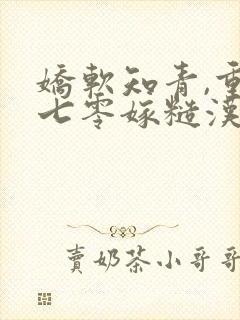 嬌軟知青,重
七零嫁糙漢
賣奶茶小哥哥